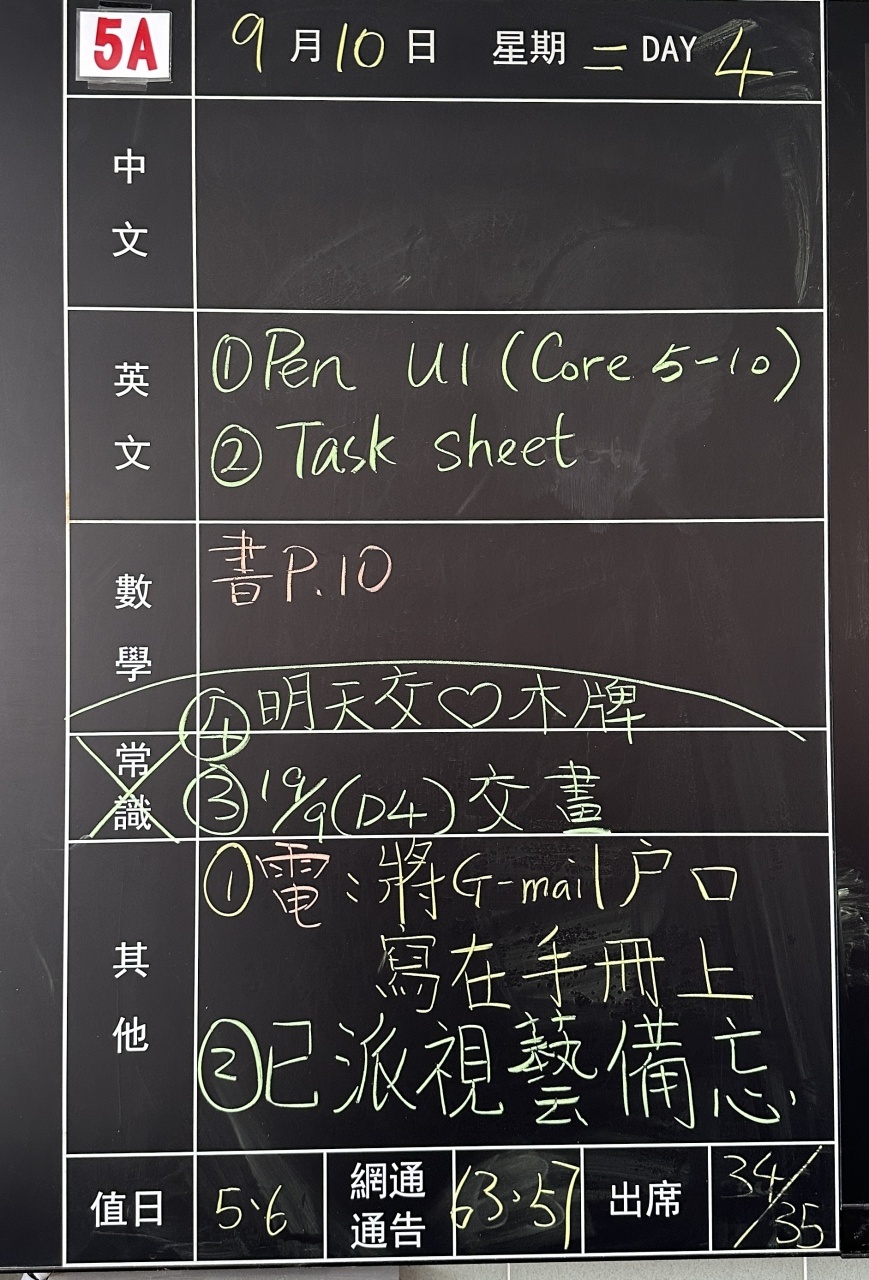 5A 9月10日 星期二 DAY 4
中文
英文
①Pen U1 (Core 5-10)
②Task sheet
數學
書P.10
④明天交♡木牌
常識
③19/9(D4)交畫
其他
①電:將G-mail户口
寫在手冊上
②已派視藝備忘.
值日 5、6 網通通告 63、57 出席 34/35